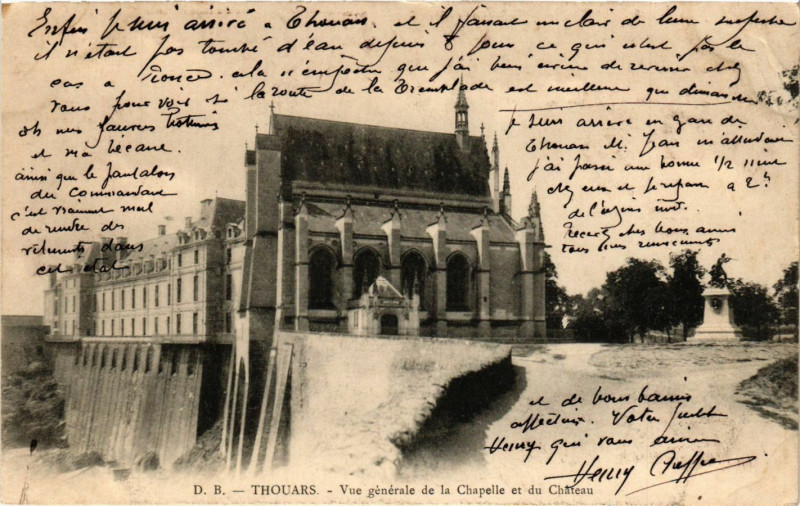 Enfin je suis arrivé a Thouars et il faisait un clair de lune superbe
il n'était pas tombé d'eau depuis 8 jours ce qui n'est pas le
cas a cela n'empêche que j'ai bien envie de revenir chez
vous pour voir si la route de la Tremblade est meilleure que
oh mes pauvres
et ma bécane.
ainsi que le pantalon
du Commandant
c'est vraiment mal
de rendre des
vêtements dans
cet état
je suis arrivé en gare de
Thouars M. Jean m'attendait
j'ai passé une bonne 1/2 heure
chez eux et je repars a 2h
de l'après midi.
Recevez chers bons amis
tous mes remerciements
et de bons baisers
affectueux. Votre petit
Henry qui vous aime
Henry
D. B. — THOUARS. - Vue générale de la Chapelle et du Château